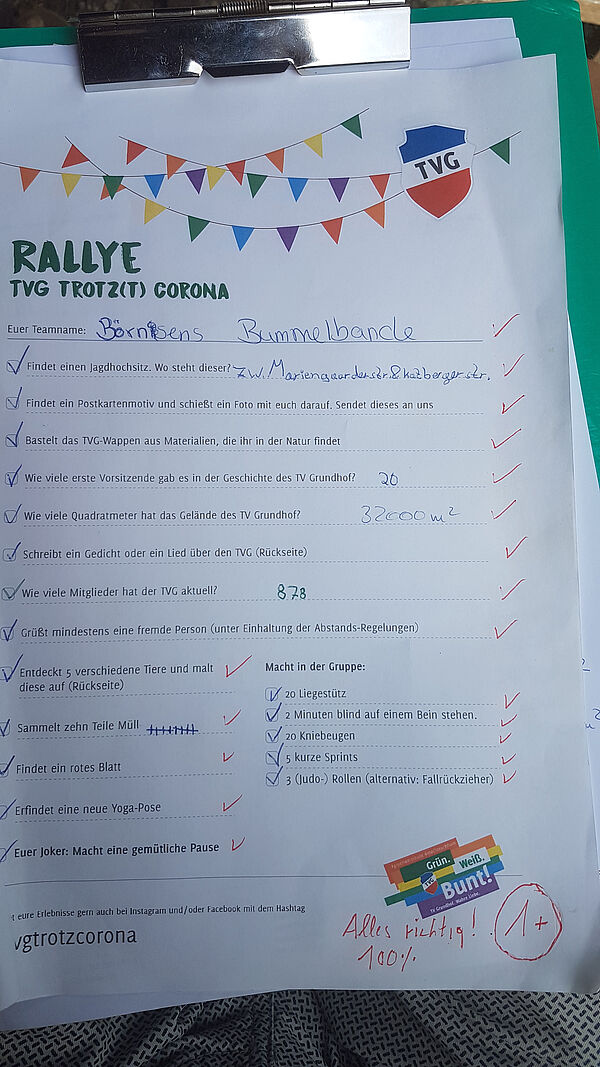 TVG
RALLYE
TVG TROTZ(T) CORONA
Euer Teamname: Börnsens Bummelbande
Findet einen Jagdhochsitz. Wo steht dieser? zw. Mariengaardenstr. & Holzbergerstr.
Findet ein Postkartenmotiv und schießt ein Foto mit euch darauf. Sendet dieses an uns
Bastelt das TVG-Wappen aus Materialien, die ihr in der Natur findet
Wie viele erste Vorsitzende gab es in der Geschichte des TV Grundhof? 20
Wie viele Quadratmeter hat das Gelände des TV Grundhof? 32000 m²
Schreibt ein Gedicht oder ein Lied über den TVG (Rückseite)
Wie viele Mitglieder hat der TVG aktuell? 878
Grüßt mindestens eine fremde Person (unter Einhaltung der Abstands-Regelungen)
Entdeckt 5 verschiedene Tiere und malt
diese auf (Rückseite)
Sammelt zehn Teile Müll
Findet ein rotes Blatt
Erfindet eine neue Yoga-Pose
Euer Joker: Macht eine gemütliche Pause
Macht in der Gruppe:
20 Liegestütz
2 Minuten blind auf einem Bein stehen.
20 Kniebeugen
5 kurze Sprints
3 (Judo-) Rollen (alternativ: Fallrückzieher)
t eure Erlebnisse gern auch bei Instagram und/oder Facebook mit dem Hashtag
vgtrotzcorona
Grün.
Weiß.
TVG
Bunt!
TV Grundhof. Wahre Liebe.
Alles richtig! 1+
100%